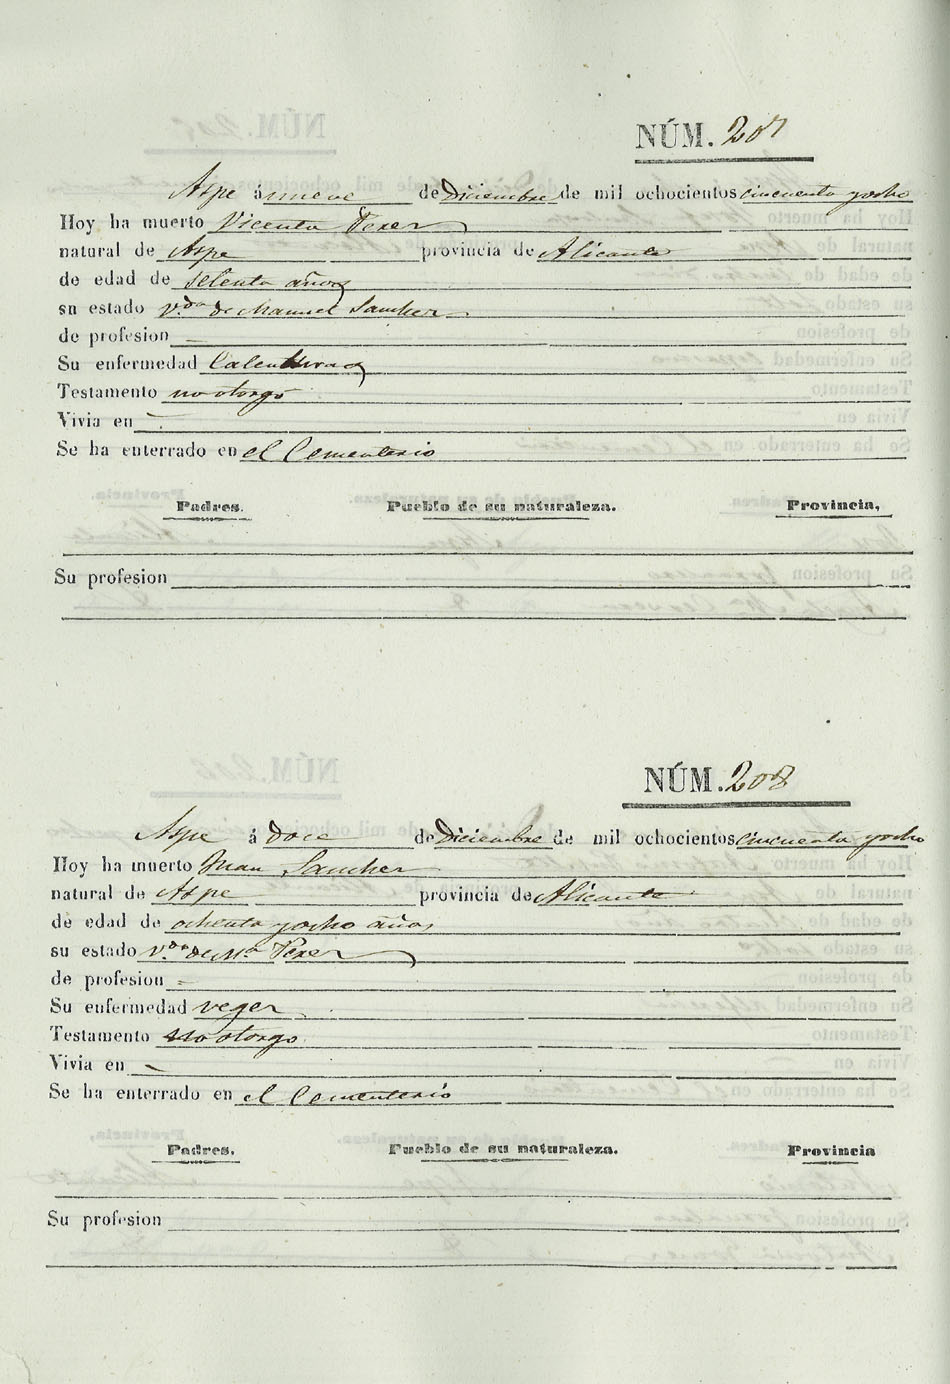 NÚM. 207
Aspe á nueve de Diciembre de mil ochocientos cincuenta y ocho
Hoy ha muerto Vicenta Perer
natural de Aspe provincia de Alicante
de edad de setenta años
su estado v.da de Manuel Sancher
de profesion
Su enfermedad Calenturas
Testamento no otorgó
Vivia en
Se ha enterrado en el Cementerio
Padres. Pueblo de su naturaleza. Provincia,
Su profesion
NÚM. 208
Aspe á doce de Diciembre de mil ochocientos cincuenta y ocho
Hoy ha muerto Juan Sancher
natural de Aspe provincia de Alicante
de edad de ochenta y ocho años
su estado v.do de M.a Perer
de profesion
Su enfermedad veger
Testamento no otorgo
Vivia en
Se ha enterrado en el Cementerio
Padres. Pueblo de su naturaleza. Provincia
Su profesion